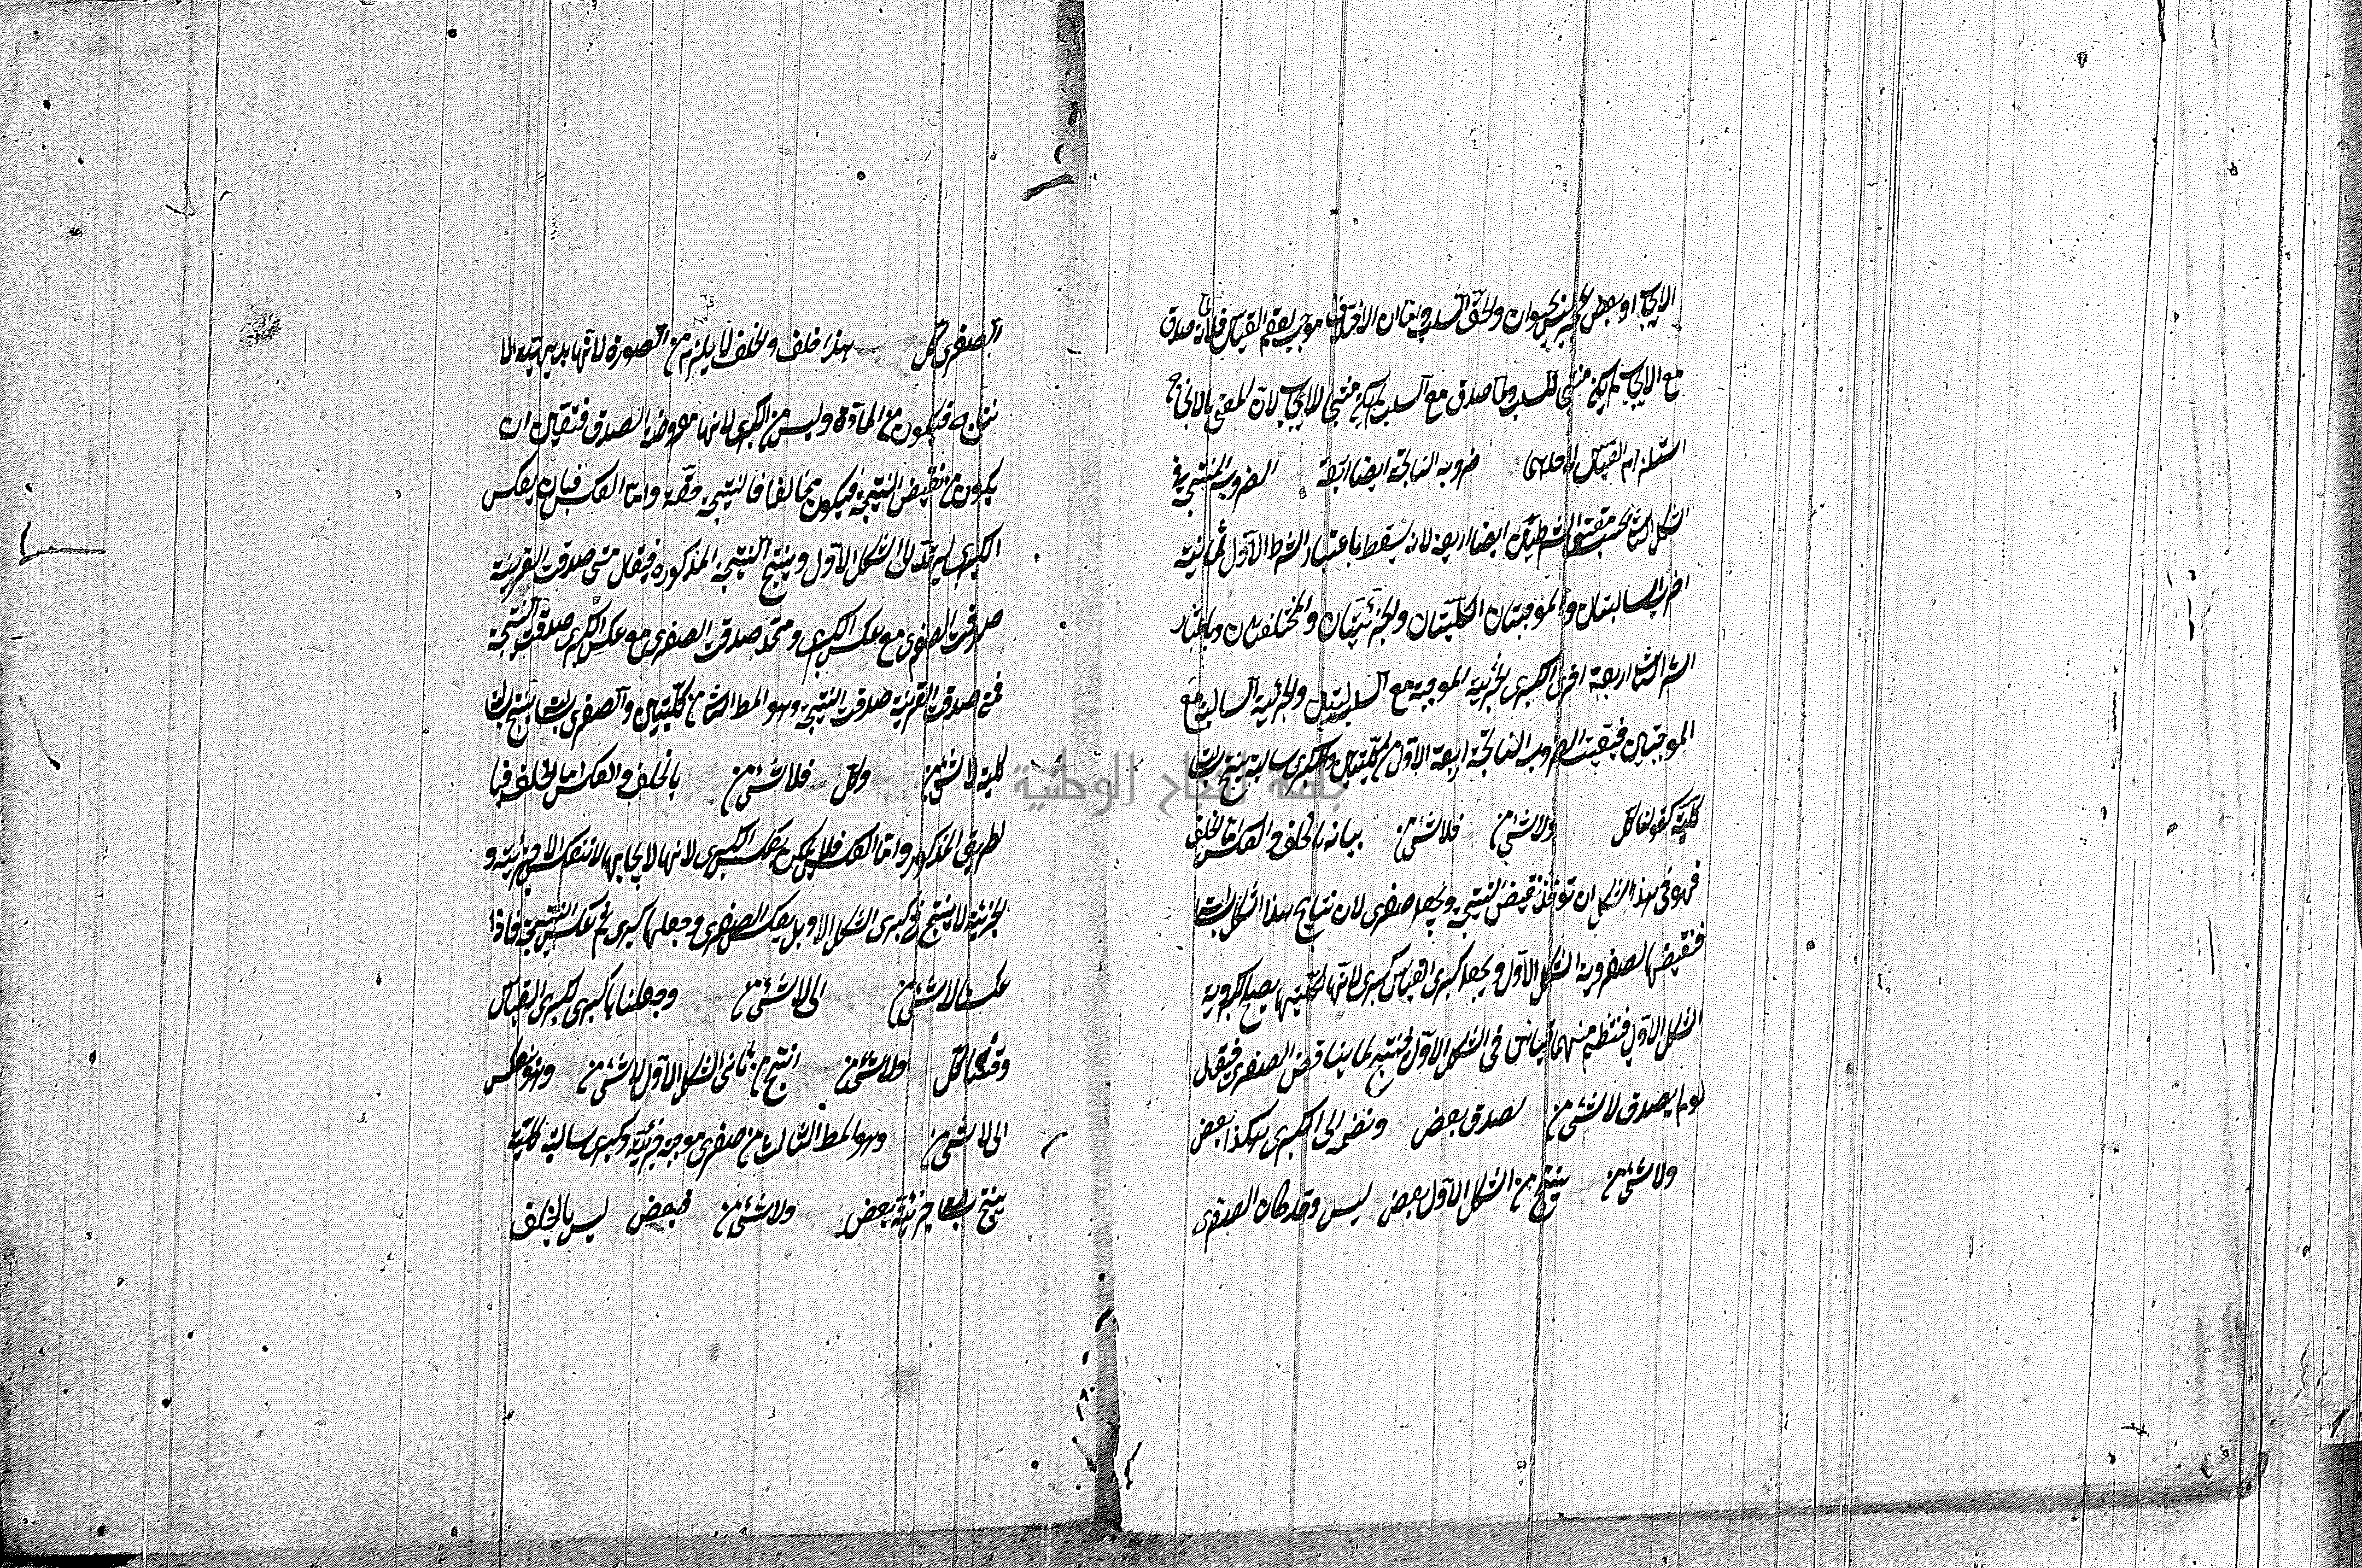 الايجاب او بعض الحيوان والحق السلب واما ان الاختلاف موجب لعقم القياس فلانه صدق
مع الايجاب لم يكن منتجا للسلب ولما صدق مع السلب لم يكن منتجا للايجاب لان المعنى بالانتاج
استلزام القياس لاحدهما ضروبه الناتجة ايضا اربعة الضروب المنتجة في
الشكل الثاني بحسب مقتضى الشرطين ايضا اربعة لانه يسقط باعتبار الشرط الاول ثمانية
اضرب السالبتان والموجبتان الكليتان والجزئيتان والمختلفتان وباعتبار
الشرط الثاني اربعة اخرى الكبرى الجزئية الموجبة مع السالبتين والجزئية السالبة مع
الموجبتين فبقيت الضروب الناتجة اربعة الاول من كليتين والكبرى سالبة ينتج سالبة
كلية كقولنا كل ولا شئ من فلا شئ من بيانه بالخلف والعكس اما الخلف
فهو في هذا الشكل ان توخذ نقيض النتيجة ويجعل صغرى لان نتايج هذا الشكل سالبة
فنقيضها لصغروية الشكل الاول ويجعل كبرى القياس كبرى لانها لكليتها يصلح لكبروية
الشكل الاول فينتظم منهما قياس في الشكل الاول منتج لما يناقض الصغرى فيقال
لو لم يصدق لا شئ من لصدق بعض ونضمه الى الكبرى هكذا بعض
ولا شئ من ينتج من الشكل الاول بعض ليس وقد كان الصغرى
الصغرى كل هذا خلف والخلف لا يلزم من الصورة لانها بديهية الا
نتاج فيكون من المادة وليس من الكبرى لانها مفروضة الصدق فتعين ان
يكون من نقيض النتيجة فيكون محالفا فالنتيجة حقة واما العكس فبان يعكس
الكبرى ليرتد الى الشكل الاول وينتج النتيجة المذكورة فيقال متى صدقت القرينة
صدقت الصغرى مع عكس الكبرى ومتى صدقت الصغرى مع عكس الكبرى صدقت النتيجة
فمتى صدقت القرينة صدقت النتيجة وهو المط الثاني من كليتين والصغرى سالبة ينتج سالبة
كلية لا شئ من وكل فلا شئ من بالخلف والعكس اما الخلف فبا
لطريق المذكور واما العكس فلا يمكن بعكس الكبرى لانها لايجابها لا تنعكس الا جزئية و
الجزئية لا ينتج في كبرى الشكل الاول بل بعكس الصغرى وجعلها كبرى ثم عكس النتيجة فاذا
عكسنا لا شئ من الى لا شئ من وجعلناها كبرى لكبرى القياس
وقلنا كل ولا شئ من انتج من ثانى الشكل الاول لا شئ من وهو ينعكس
الى لا شئ من وهو المط الثالث من صغرى موجبة جزئية وكبرى سالبة كلية
ينتج سالبة جزئية بعض ولا شئ من فبعض ليس بالخلف